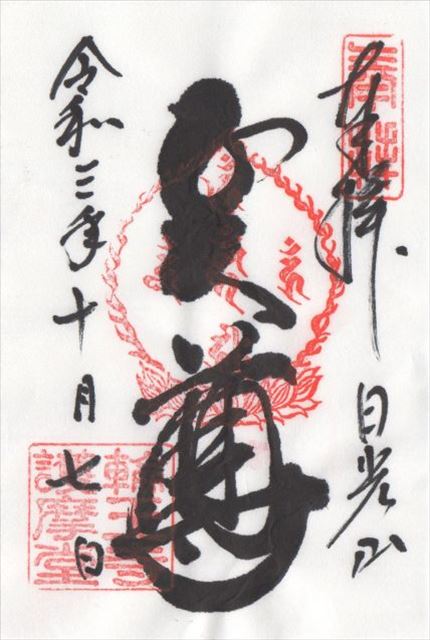 奉拝
日光山
五大尊
令和三年十月七日
輪王寺
護摩堂